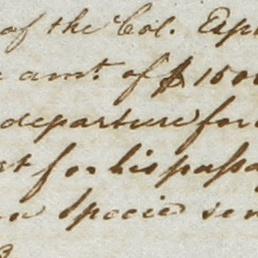 of the Col. Esp
amt. of $ 150
departure for
st for his passa
in specie sen